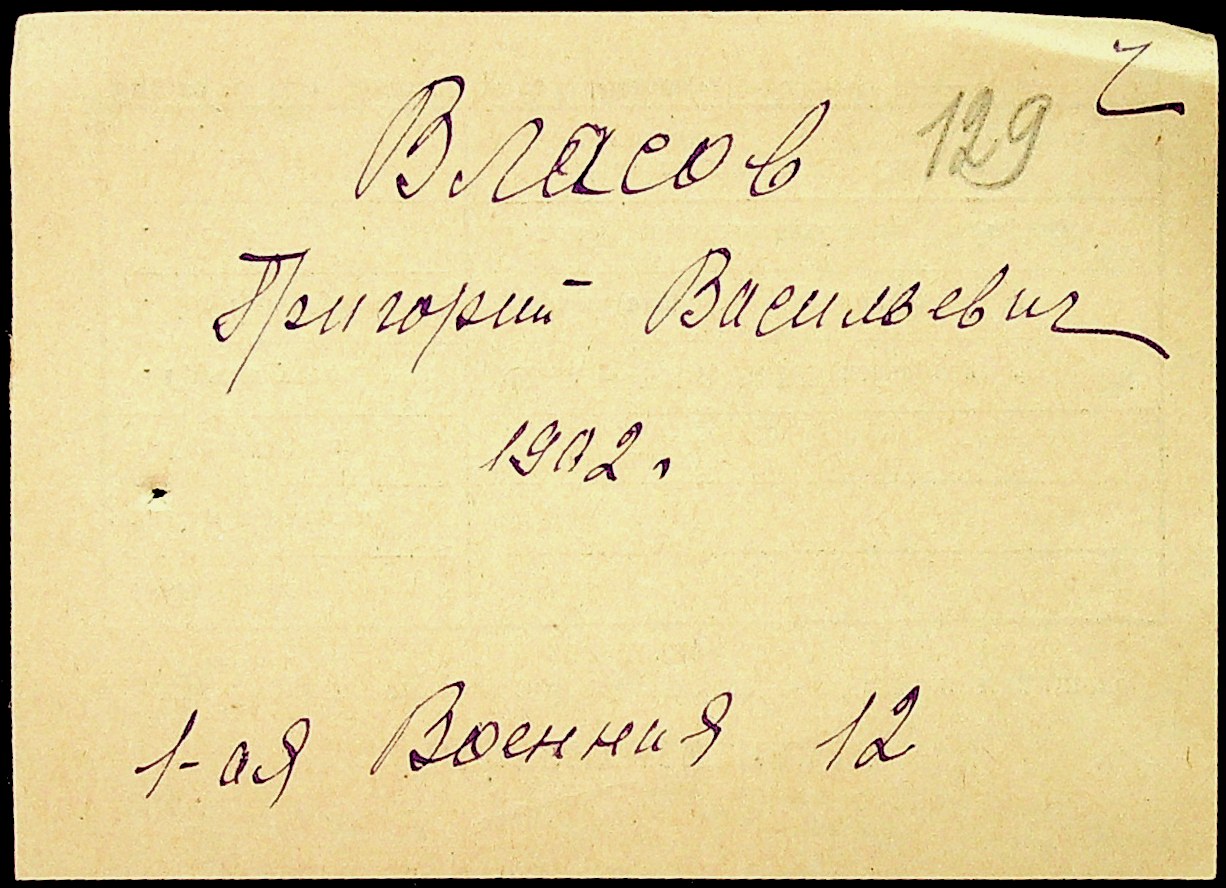 Власов 129
Григорий Васильевич
1902.
1-ая Военная 12